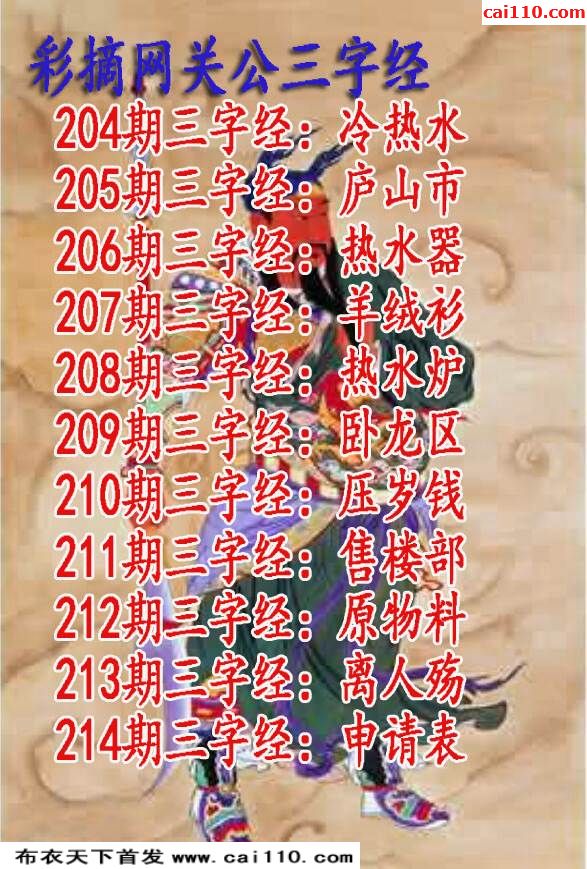 cai110.com
彩摘网关公三字经
204期三字经：冷热水
205期三字经：庐山市
206期三字经：热水器
207期三字经：羊绒衫
208期三字经：热水炉
209期三字经：卧龙区
210期三字经：压岁钱
211期三字经：售楼部
212期三字经：原物料
213期三字经：离人殇
214期三字经：申请表
布衣天下首发 www.cai110.com